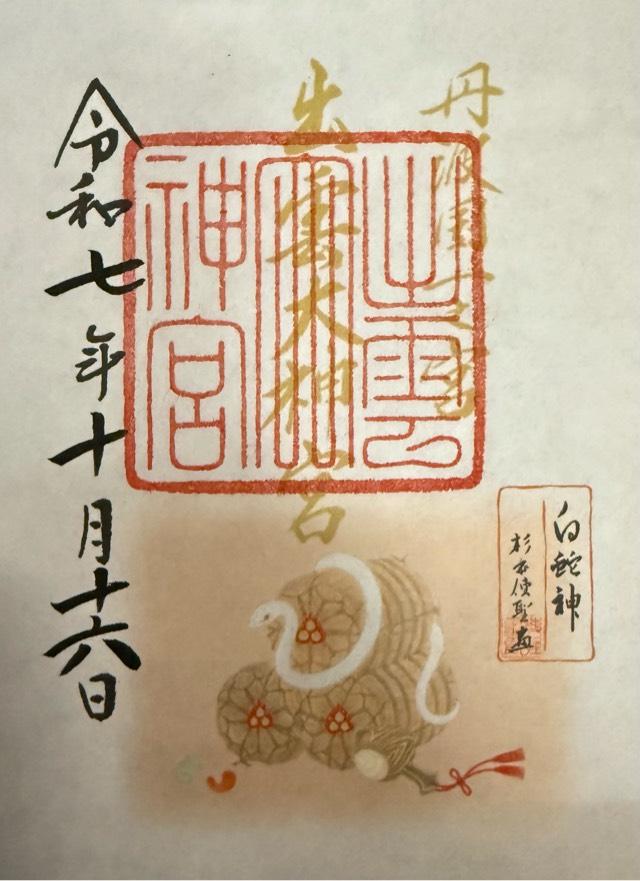 丹波国一之宮
出雲大神宮
出雲大神宮
令和七年十月十六日
白蛇神
杉本使聖画